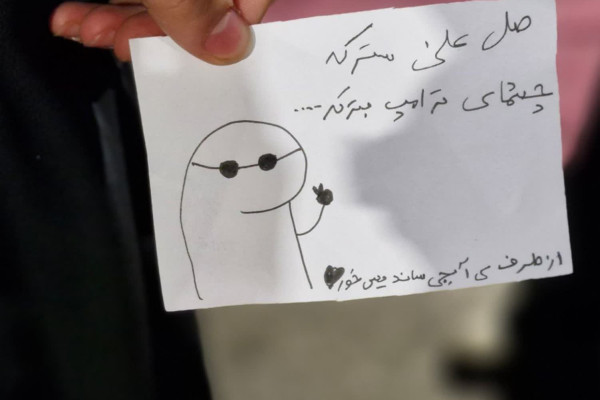 صل علی سترکه
چشمای ترامپ بترکه....
از طرف سی آیجی ساندیس خور